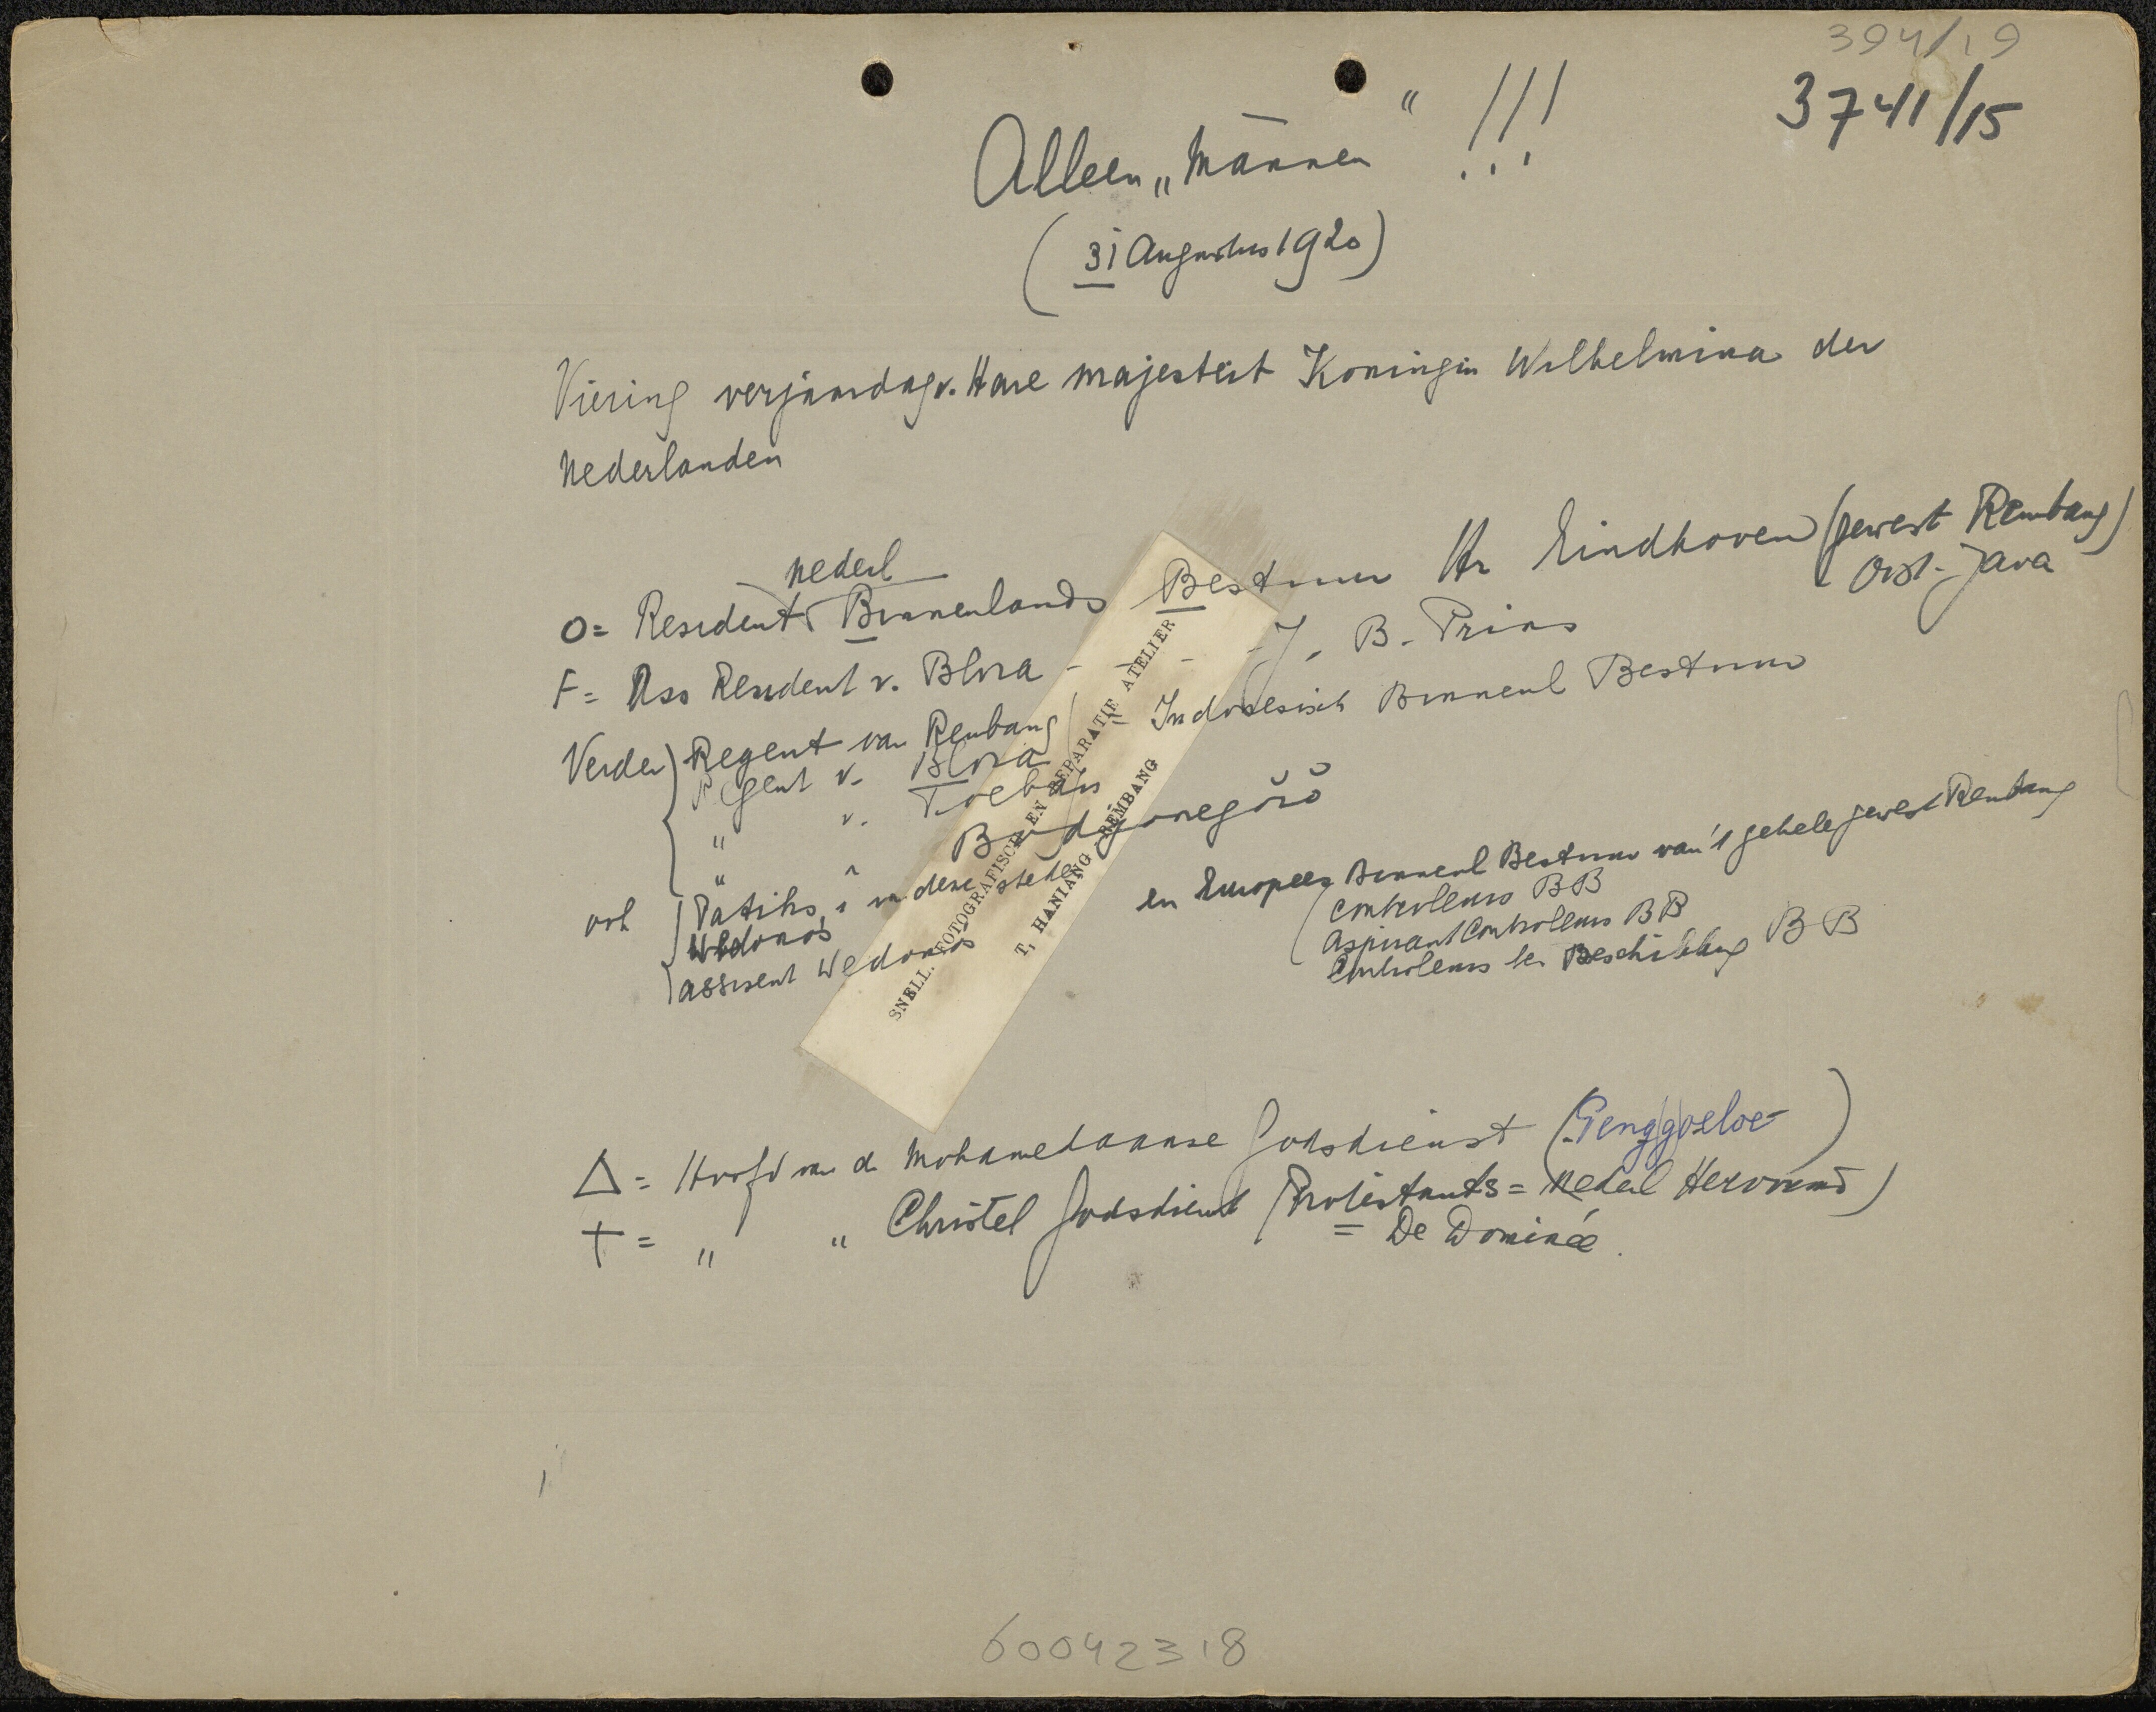 394/19
3741/15
Alleen „Mannen“ !!!
(31 Augustus 1920)
Viering verjaardag v. Hare Majesteit Koningin Wilhelmina der
Nederlanden
nederl
O = Resident Binnenlands Bestuur Hr Eindhoven (gewest Rembang)
Oost-Java
F = Ass Resident v. Blora - - - J. B. Prins
Verder Regent van Rembang - Indonesisch Binnenl Bestuur
Regent v. Blora
" v. Toeban
" " Bodjonegoro
ook Patihs in deze steden
Wedonos
assisent Wedonos
en Europees Binnenl Bestuur van 't gehele gewest Rembang
Controleurs BB
Aspirant Controleurs BB
Controleurs ter Beschikking BB
SNELL. FOTOGRAFISCH EN REPARATIE ATELIER
T. HANIANG REMBANG
Δ = Hoofd van de Mohamedaanse Godsdienst (Penggoeloe)
† = " " Christel Godsdienst (Protestants = Nederl Hervormd)
= De Dominée.
60042318